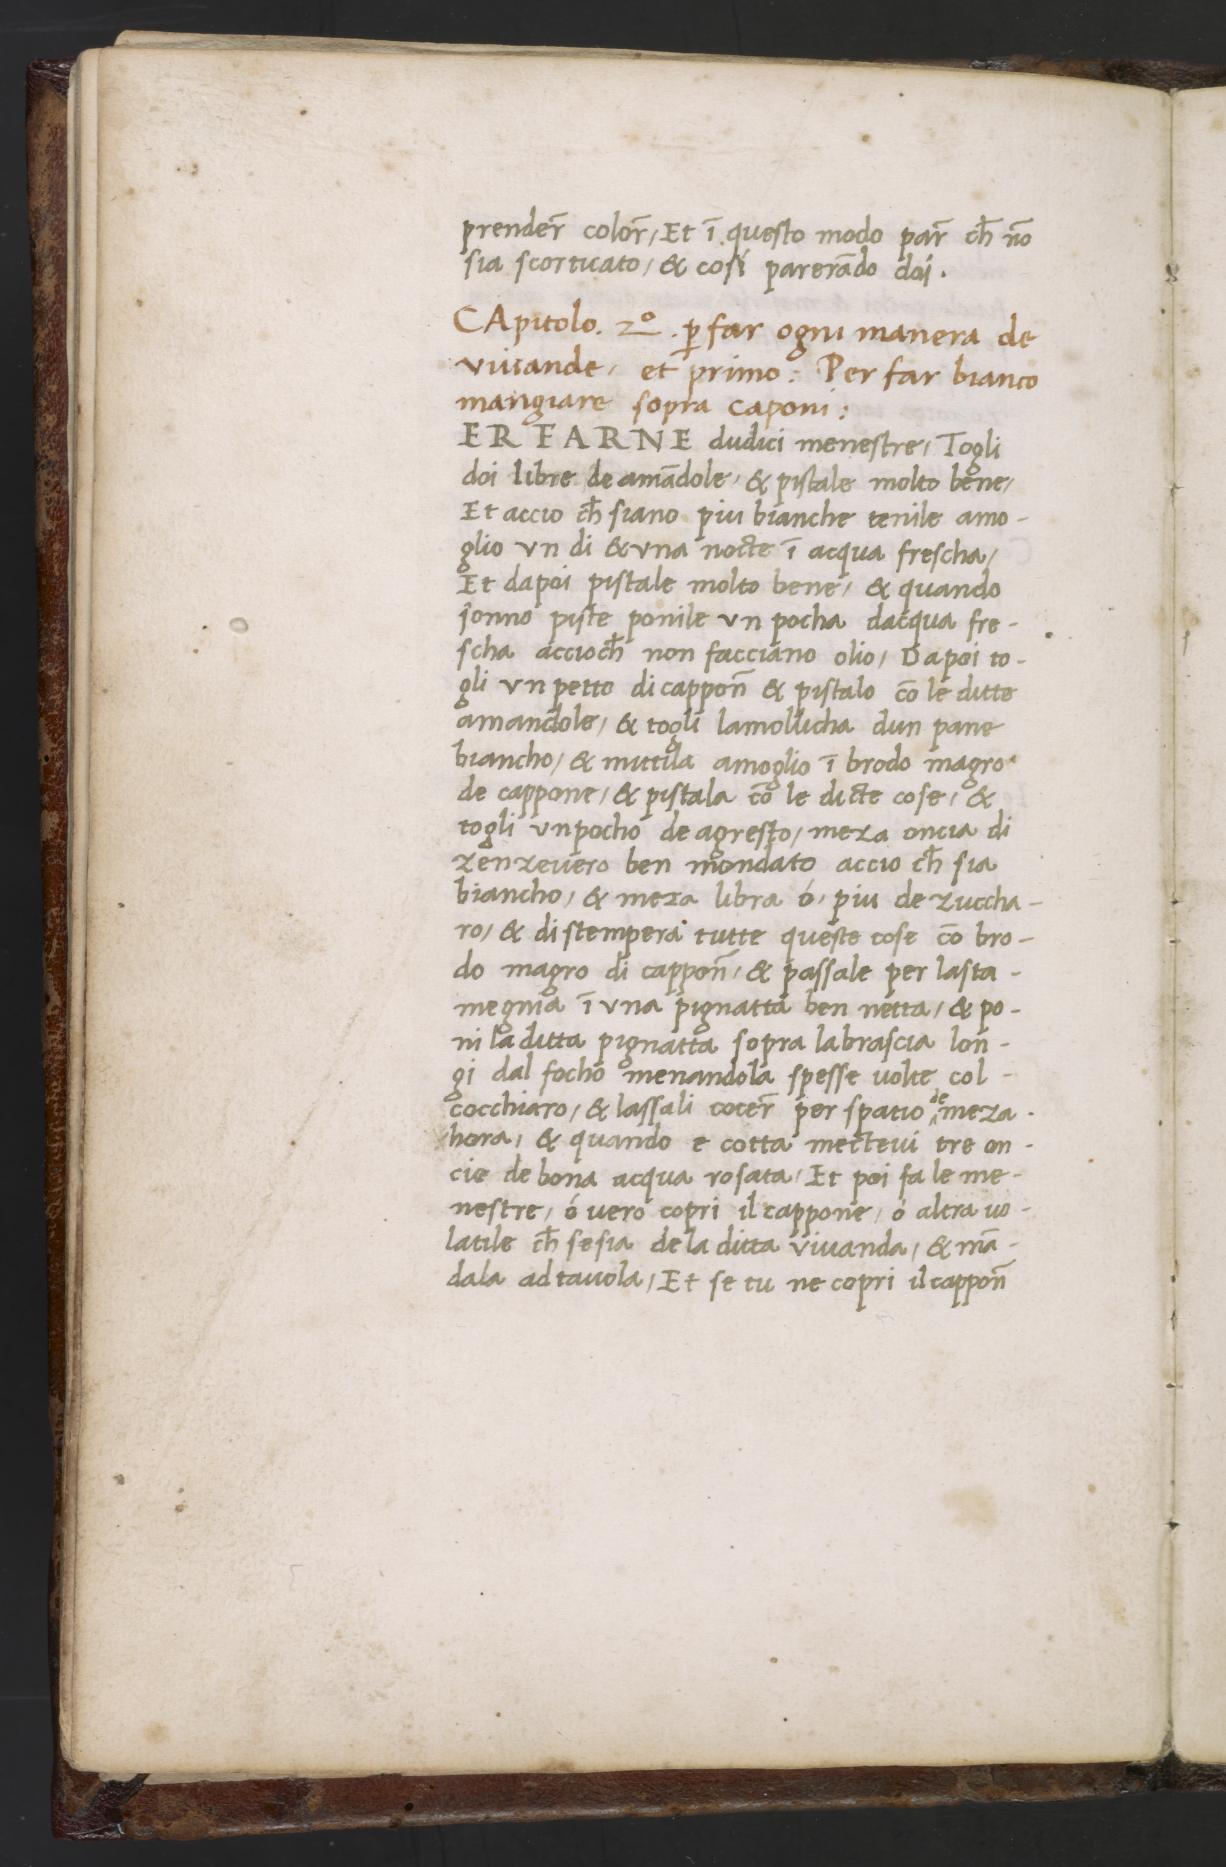 prender̄ color̄, Et ī questo modo par̄ ch̄ nō
sia scorticato, & così parerādo doi.
CApitolo. 2º. p̱ far ogni manera de
vivande, et primo: Per far bianco
mangiare sopra caponi:
ER FARNE dudici menestre, Togli
doi libre de amādole, & pistale molto bene,
Et accio ch̄ siano piu bianche tenile amo-
glio un di & una nocte ī acqua frescha,
Et dapoi pistale molto bene, & quando
sonno piste ponile un pocha dacqua fre-
scha accioch̄ non facciano olio, Dapoi to-
gli un petto di cappon̄ & pistalo cō le ditte
amandole, & togli lamollicha dun pane
biancho, & mittila amoglio ī brodo magro
de cappone, & pistala cō le dicte cose, &
togli un pocho de agresto, meza oncia di
zenzevero ben mondato accio ch̄ sia
biancho, & meza libra ó, piu de zuccha-
ro, & distempera tutte queste cose cō bro-
do magro di cappon̄, & passale per lasta-
megnia ī una pignatta ben netta, & po-
ni la ditta pignatta sopra labrascia lon-
gi dal focho menandola spesse uolte col
cocchiaro, & lassali cocer̄ per spatio de meza
hora, & quando e cotta mectevi tre on-
cie de bona acqua rosata, Et poi fa le me-
nestre, ó uero copri il cappone, ó altra uo-
latile ch̄ se sia de la ditta vivanda, & mā-
dala ad tauola, Et se tu ne copri il cappon̄